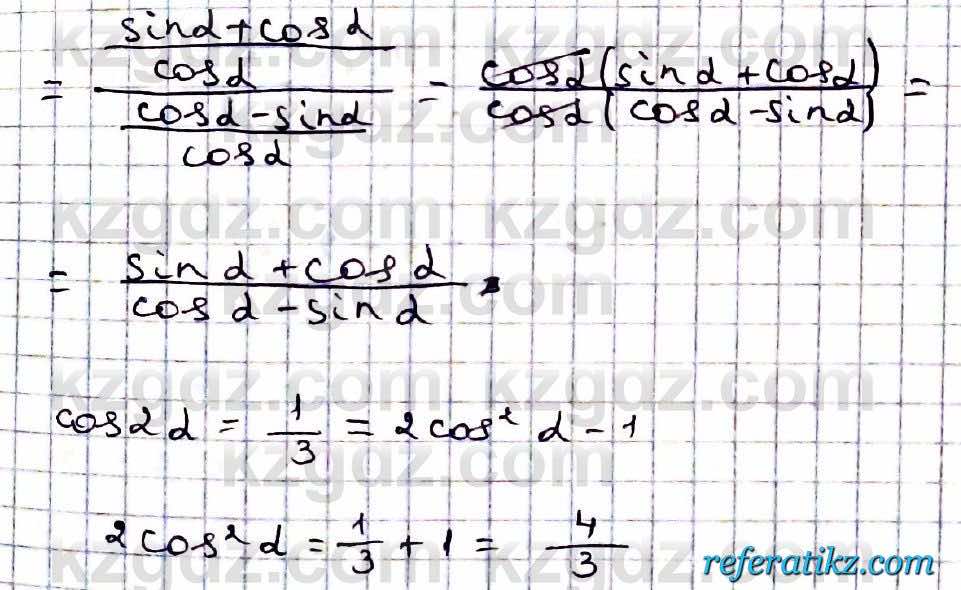 = ((sinα + cosα)/cosα)/((cosα - sinα)/cosα) = (cosα(sinα + cosα))/(cosα(cosα - sinα)) =
= (sin α + cos α)/(cos α - sin α)
cos2α = 1/3 = 2cos² α - 1
2cos²α = 1/3 + 1 = 4/3
kzgdz.com
referatikz.com